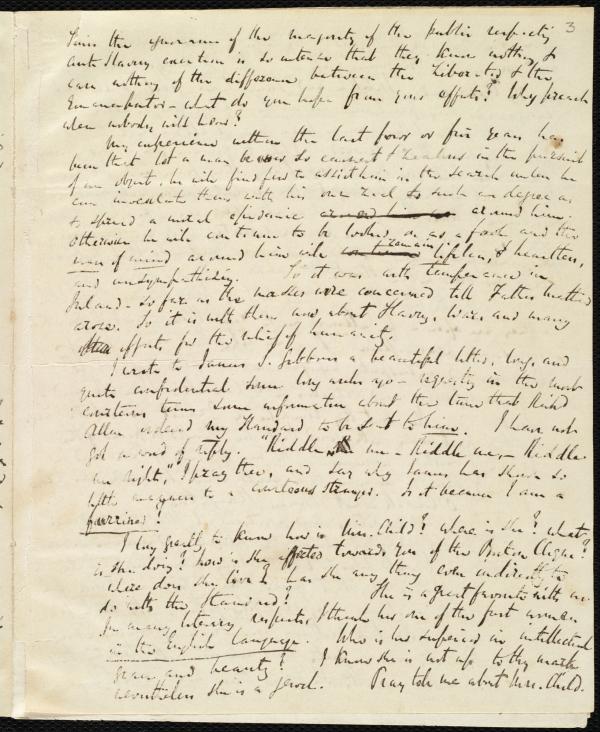 3
Since the ignorance of the majority of the public respecting
Anti Slavery exertion is so intense that they know nothing &
care nothing of the difference between the Liberator & the
Emancipator - what do you hope from your efforts? Why preach
when nobody will hear?
My experience within the last four or five years has
been that let a man be never so earnest & zealous in the pursuit
of an object, he will find few to assist him in the search unless he
can inoculate them with his own zeal to such a degree as
to spread a moral epidemic around him.
Otherwise he will continue to be looked on as a fool and the
men of mind around him will remain lifeless, & heartless,
and unsympathising. So it was with Temperance in
Ireland - so far as the masses were concerned till Father Mathew
arose. So it is with them now about Slavery, War, and many
other efforts for the relief of humanity.
I wrote to James S. Gibbons a beautiful letter, long, and
quite confidential some long while ago - requesting in the most
courteous terms some information about the time that Richd
Allen ordered my Standard to be sent to him. I have not
got a word of reply. "Riddle me - Riddle me, - Riddle
me right," I pray thee, and say why James has shown so
little to a courteous stranger. Is it because I am a
furriner?
I long greatly to know how is Mrs. Child? where is she? what
is she doing? how is she affected towards you of the Boston Clique?
where does she live? has she any thing even indirectly to
do with the Standard? She is a great favourite with me.
In many literary respects, I think her one of the first women
in the English language. Who is her superior in intellectual
grace and beauty? I know she is not up to thy mark
nevertheless she is a jewel. Pray tell me about Mrs. Child.